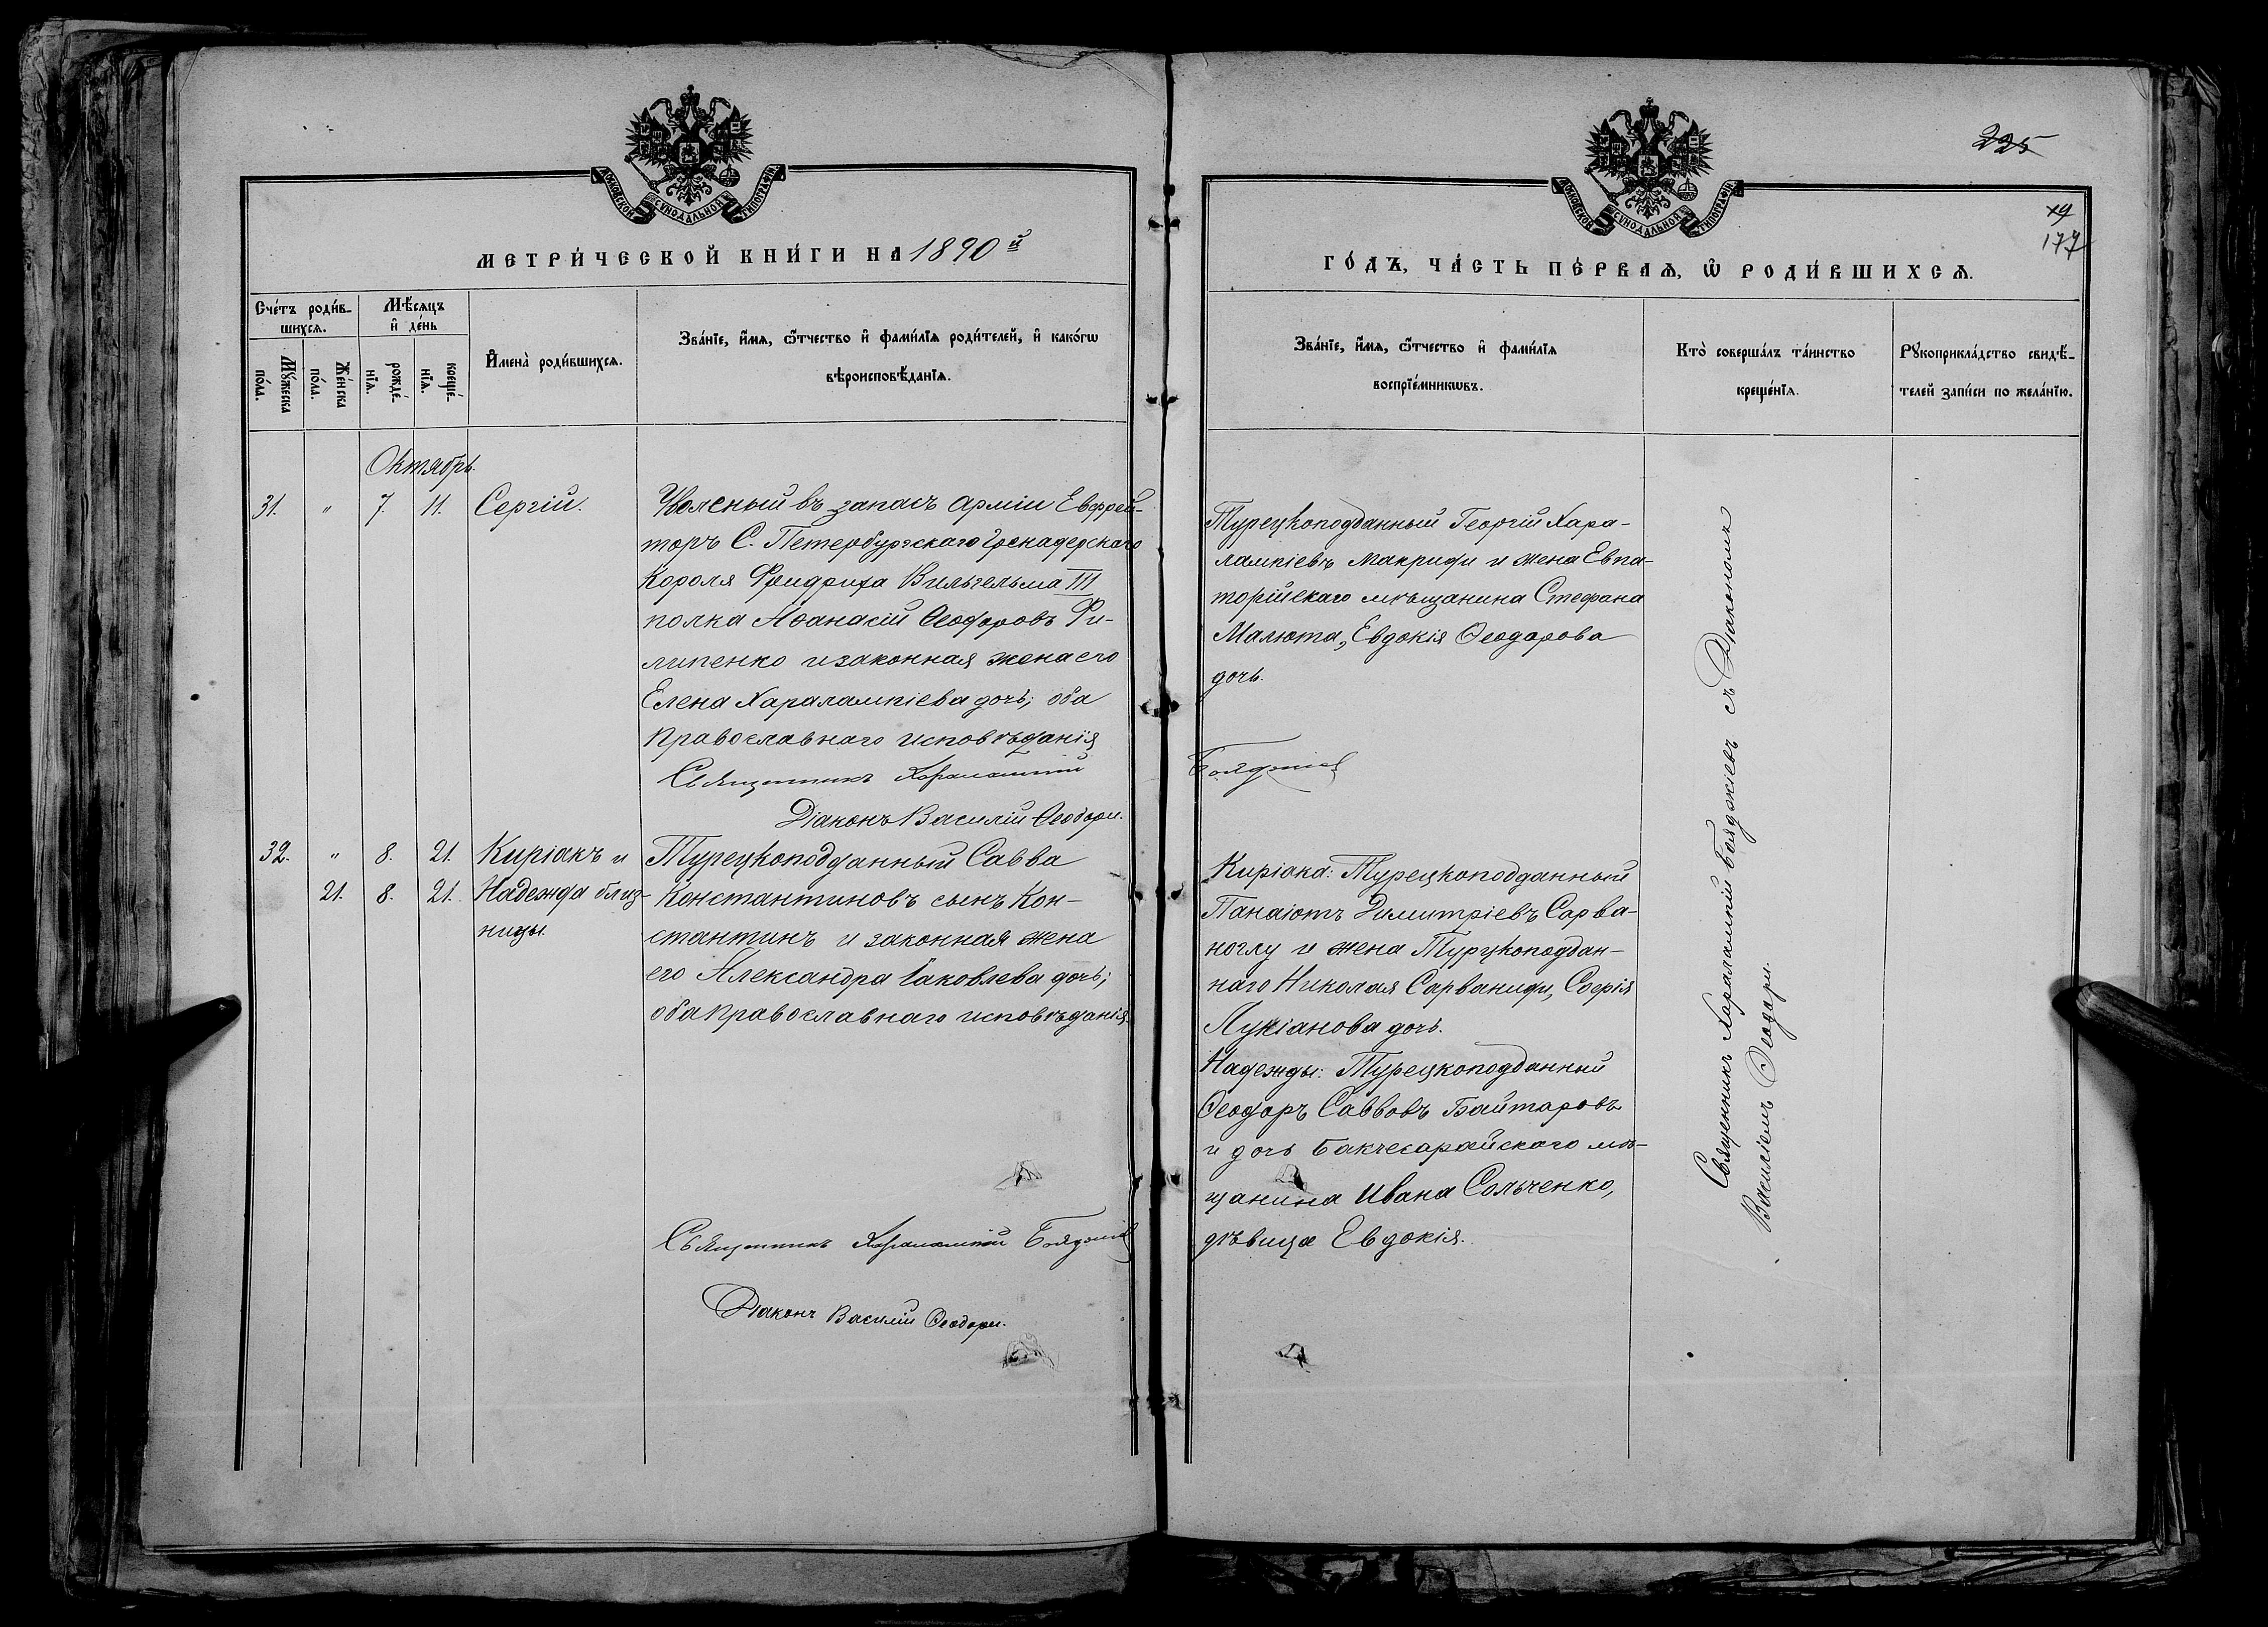 МОСКОВСКОЙ СѴНОДАЛЬНОЙ ТИПОГРАФІИ
МЕТРИ́ЧЕСКОЙ КНИ́ГИ НА 1890 й
Сче́тъ роди́в-
шихсѧ.
Мѣ́сѧцъ
и҆ де́нь
Мꙋ́жеска по́ла.
Же́нска по́ла.
рожде́-нїѧ.
креще́-нїѧ.
И҆мена̀ роди́вшихсѧ.
Зва́нїе, и҆́мѧ, ѿ́тчество и҆ фами́лїѧ роди́телей, и҆ како́гѡ
вѣроисповѣ́данїѧ.
Октябрь.
31. " 7. 11. Сергій.
Уволеный въ запасъ арміи Евфрей-
торъ С. Петербургскаго Гренадерскаго
Короля Фридриха Вильгельма III
полка Аѳанасій Ѳеодоровъ Фи-
липенко и законная жена его
Елена Харалампіева дочь; оба
православнаго исповѣданія
Священникъ Харалампій
Діаконъ Василій Ѳеодори.
32. " 8. 21. Киріакъ и
21. 8. 21. Надежда близ-
ницы.
Турецкоподданный Савва
Константиновъ сынъ Кон-
стантинъ и законная жена
его Александра Іаковлева дочь;
оба православнаго исповѣданія.
Священникъ Харалампій Бояджіевъ
Діаконъ Василій Ѳеодори.
225
19
177
МОСКОВСКОЙ СѴНОДАЛЬНОЙ ТИПОГРАФІИ
ГО́ДЪ, ЧА́СТЬ ПЕ́РВАѦ, Ѡ҆ РОДИ́ВШИХСѦ.
Зва́нїе, и҆́мѧ, ѿ́тчество и҆ фами́лїѧ
воспрїе́мникѡвъ.
Кто̀ соверша́лъ та́инство
креще́нїѧ.
Рꙋкоприкла́дство свидѣ́-
телей за́писи по жела́нїю.
Турецкоподданный Георгій Хара-
лампіевъ Макриди и жена Евпа-
торійскаго мѣщанина Стефана
Малюта, Евдокія Ѳеодорова
дочь.
Бояджіевъ
Киріака: Турецкоподданный
Панаіотъ Димитріевъ Сарва-
ноглу и жена Турецкоподдан-
наго Николая Сарваниди, Софія
Лукіанова дочь.
Надежды: Турецкоподданный
Ѳеодоръ Саввовъ Байтаровъ
и дочь Бакчесарайскаго мѣ-
щанина Ивана Сольченко,
дѣвица Евдокія.
Священникъ Харалампій Бояджіевъ съ Діакономъ
Василіемъ Ѳеодори.